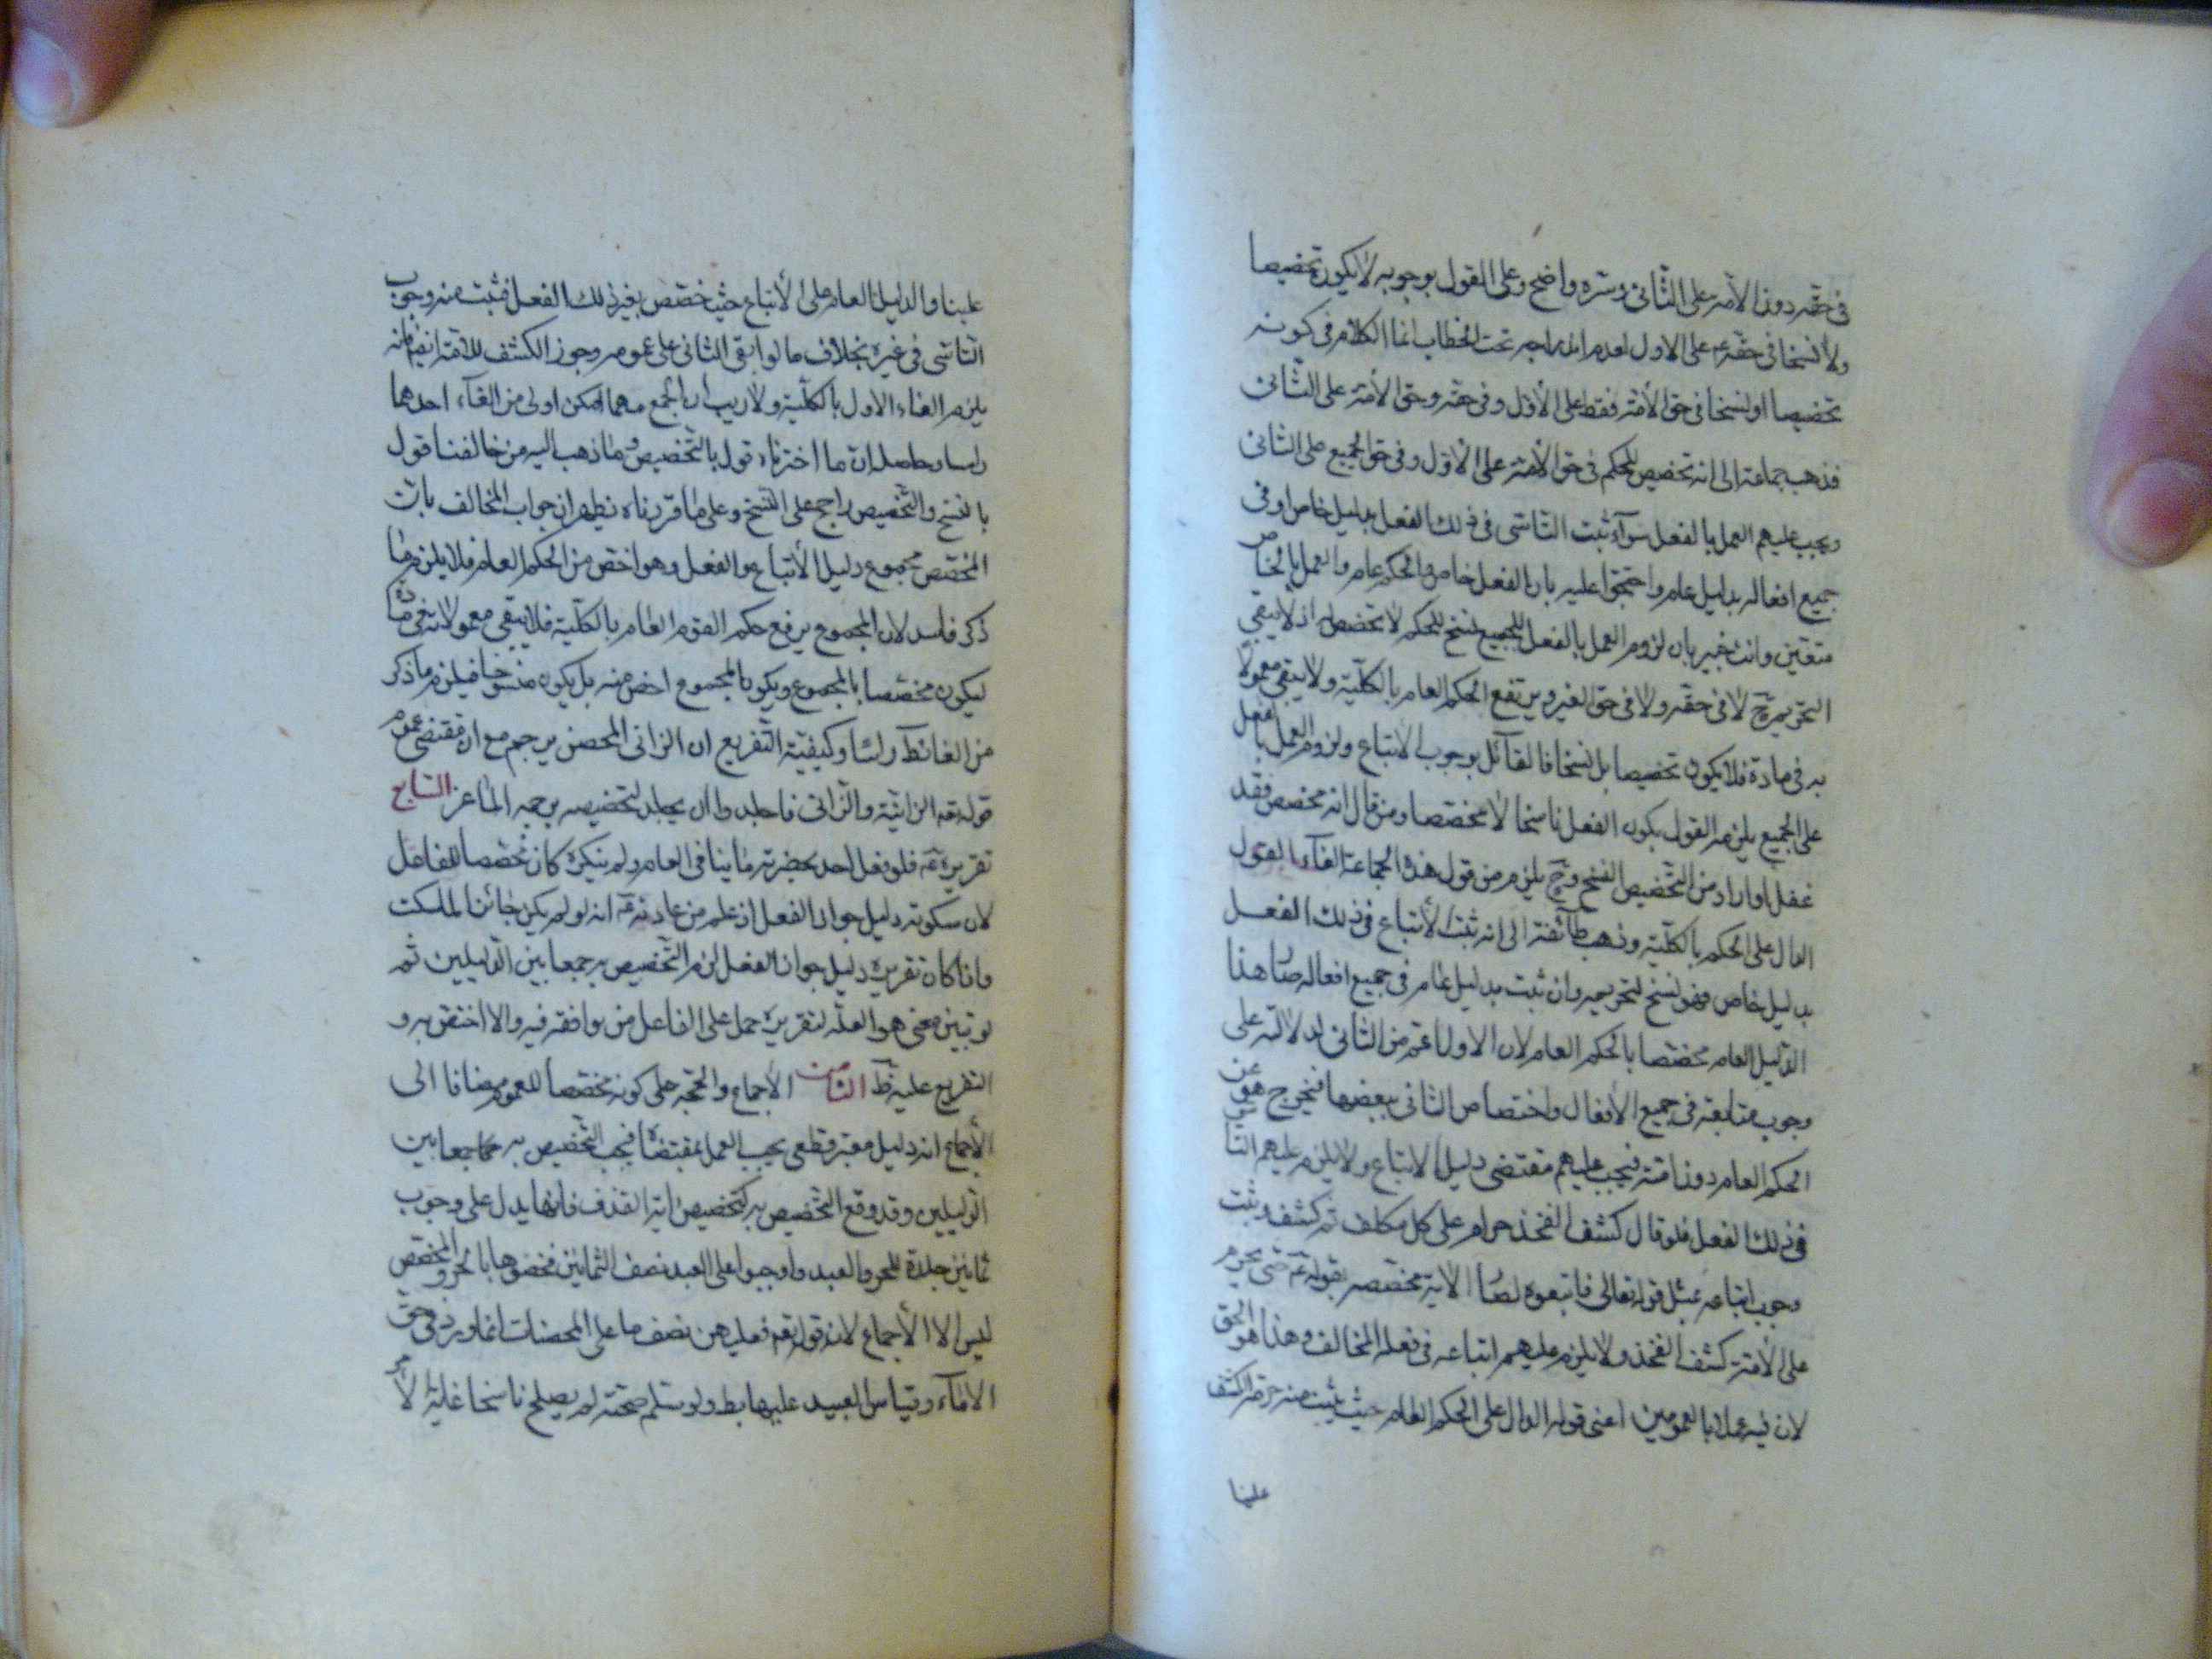 في حقه دون الأمة على الثاني وستره واضح وعلى القول بوجوبه لا يكون تخصيصا
ولا نسخا في حقه عم على الاول لعدم اندراجه تحت الخطاب انما الكلام في كونه
تخصيصا او نسخا في حق الأمة فقط على الأول وفي حقه وحق الأمة على الثاني
فذهب جماعة الى انه تخصيص للحكم في حق الأمة على الأول وفي حق الجميع على الثاني
ويجب عليهم العمل بالفعل سواء ثبت التأسي في ذلك الفعل بدليل خاص او في
جميع افعاله بدليل عام واحتجوا عليه بان الفعل خاص والحكم عام والعمل بالخاص
متعين وانت خبير بان لزوم العمل بالفعل للجميع نسخ للحكم لا تخصيص له اذ لا يبقى
التحريم ح لا في حقه ولا في حق الغير ويرتفع الحكم العام بالكلية ولا يبقى معمولا
به في مادة فلا يكون تخصيصا بل نسخا فالقائل بوجوب الاتباع ولزوم العمل بالفعل
على الجميع يلزمه القول بكون الفعل ناسخا لا مخصصا ومن قال انه مخصص فقد
غفل او اراد من التخصيص النسخ وح يلزم من قول هذه الجماعة الغاء القول
الدال على الحكم بالكلية وذهب طائفة الى انه ثبت الأتباع في ذلك الفعل
بدليل خاص فهو نسخ لتحريمه وان ثبت بدليل عام في جميع افعاله صار هذا
الدليل العام مخصصا بالحكم العام لان الاول اعم من الثاني لدلالته على
وجوب متابعته في جميع الأفعال واختصاص الثاني ببعضها فيخرج هو عن
الحكم العام دون امته فيجب عليهم مقتضى دليل الاتباع ولا يلزم عليهم التأسي
في ذلك الفعل فلو قال كشف الفخذ حرام على كل مكلف ثم كشف وثبت
وجوب اتباعه بمثل قوله تعالى فاتبعوه لصار الاية مخصصه بقوله عم حتى يحرم
على الأمة كشف الفخذ ولا يلزم عليهم اتباعه في فعله المخالف وهذا هو الحق
لان فيه عملا بالعمومين اعني قوله الدال على الحكم العام حيث يثبت منه حرمة الكشف
علينا
علينا والدليل العام على الأتباع حيث خصص بغير ذلك الفعل فثبت منه وجوب
التأسي في غيره بخلاف ما لو ابقى الثاني على عمومه وجوز الكشف للأمة ايضا فانه
يلزم الغاء الاول بالكلية ولا ريب ان الجمع مهما امكن اولى من الغاء احدهما
راسا وحاصله ان ما اخترناه قول بالتخصيص وما ذهب اليه من خالفنا قول
بالنسخ والتخصيص راجح على النسخ وعلى ما قررناه يظهر ان جواب المخالف بان
المخصص مجموع دليل الأتباع والفعل وهو اخص من الحكم العام فلا يلزم ما
ذكر فاسد لان المجموع يرفع حكم القوم العام بالكلية فلا يبقى معمولا به في مادة
ليكون مخصصا بالمجموع ويكون المجموع اخص منه بل يكون منسوخا فيلزم ما ذكر
من الغائط راسا وكيفية التفريع ان الزاني المحصن يرجم مع ان مقتضى عموم
قوله تع الزانية والزاني فاجلدوا ان يجلد لتخصيصه برجمه الماعز السابع
تقريره عم فلو فعل احد بحضرته ما ينافي العام ولم ينكره كان مخصصا للفاعل
لان سكوته دليل جواز الفعل اذ علم من عادته عم انه لو لم يكن جائزا لما سكت
واذا كان تقريره دليل جواز الفعل لزم التخصيص به جمعا بين الدليلين ثم
لو تبين معنى هو العلة لتقريره حمل على الفاعل من يوافقه فيه والا اختص به و
التفريع عليه ظ الثامن الاجماع والحجة على كونه مخصصا للعموم مضافا الى
الأجماع انه دليل معتبر قطعي يجب العمل بمقتضاه فيجب التخصيص به كما جمعا بين
الدليلين وقد وقع التخصيص به كتخصيص اية القذف فانها يدل على وجوب
ثمانين جلدة للحر والعبد واوجبوا على العبد نصف الثمانين فخصوها بالحر والمخصص
ليس الا الأجماع لان قوله تع فعليهن نصف ما على المحصنات انما ورد في حق
الاماء وقياس العبيد عليها بط ولو سلم صحته لم يصلح ناسخا غاية الأمر